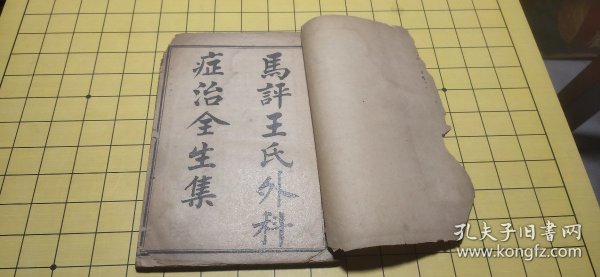 馬評王氏外科
症治全生集
孔夫子旧书网
www.kongfz.com